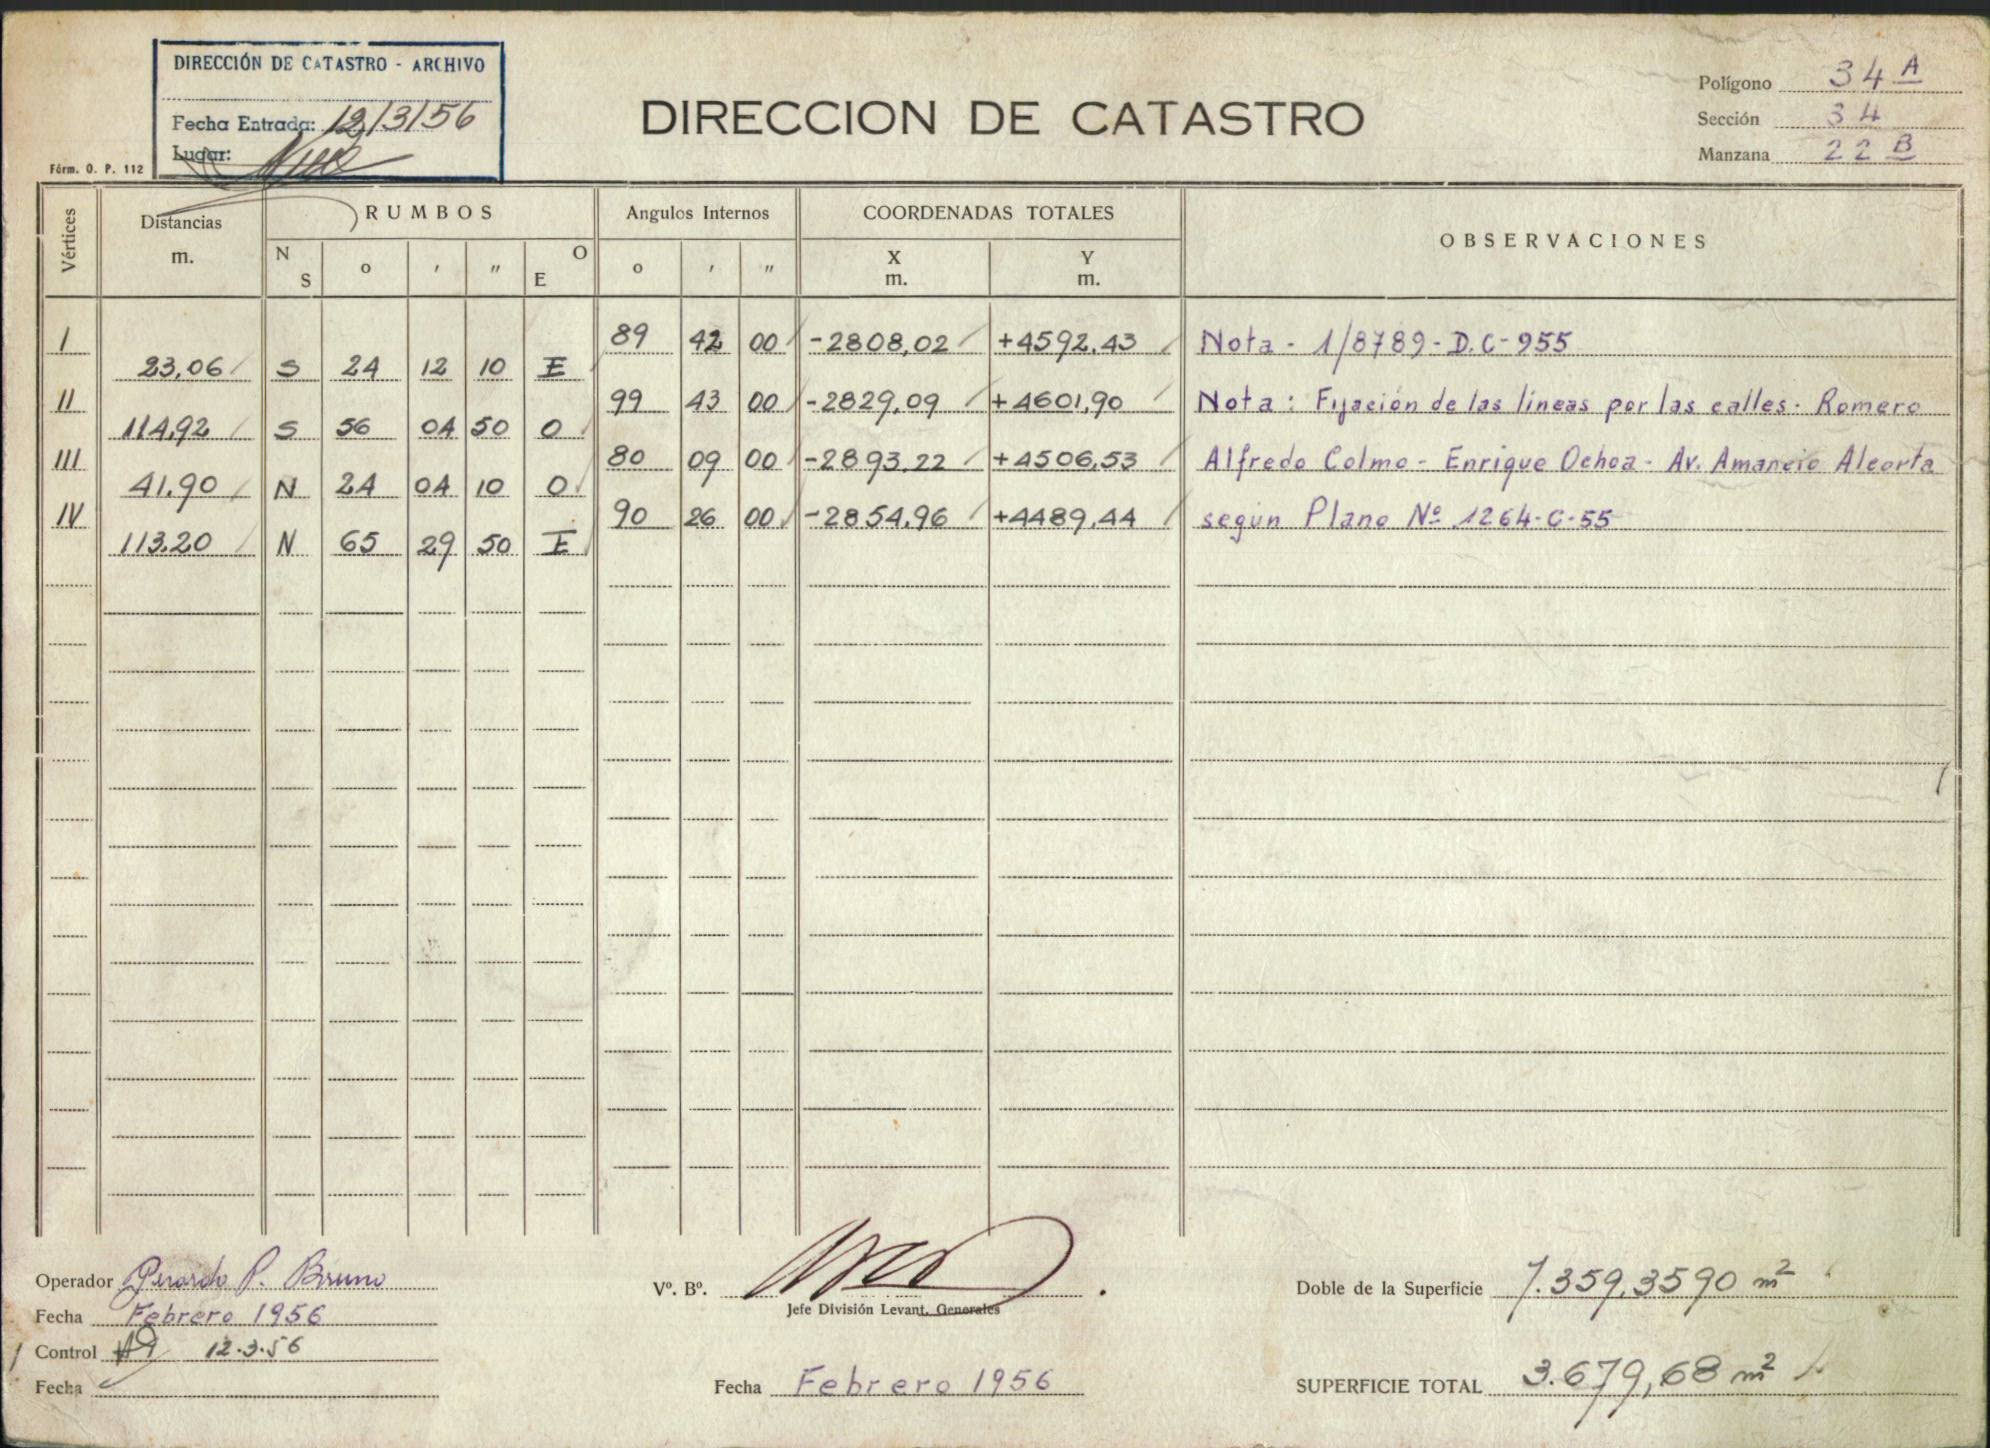 DIRECCIÓN DE CATASTRO - ARCHIVO
Fecha Entrada: 12/3/56
Lugar:
Fórm. O. P. 112
DIRECCION DE CATASTRO
Polígono 34 A
Sección 34
Manzana 22 B
Vértices Distancias m. RUMBOS Angulos Internos COORDENADAS TOTALES OBSERVACIONES
N S o ' " O E o ' " X m. Y m.
I 89 42 00 -2808,02 +4592,43 Nota - 1/8789-D.C-955
23,06 S 24 12 10 E
II 99 43 00 -2829,09 +4601,90 Nota: Fijación de las líneas por las calles - Romero
114,92 S 56 04 50 O
III 80 09 00 -2893,22 +4506,53 Alfredo Colmo - Enrique Ochoa - Av. Amancio Alcorta
41,90 N 24 04 10 O
IV 90 26 00 -2854,96 +4489,44 segun Plano Nº 1264-C-55
113,20 N 65 29 50 E
Operador Gerardo P. Bruno
Fecha Febrero 1956
Control 12.3.56
Fecha
Vº. Bº.
Jefe División Levant. Generales
Fecha Febrero 1956
Doble de la Superficie 7.359,3590 m²
SUPERFICIE TOTAL 3.679,68 m²